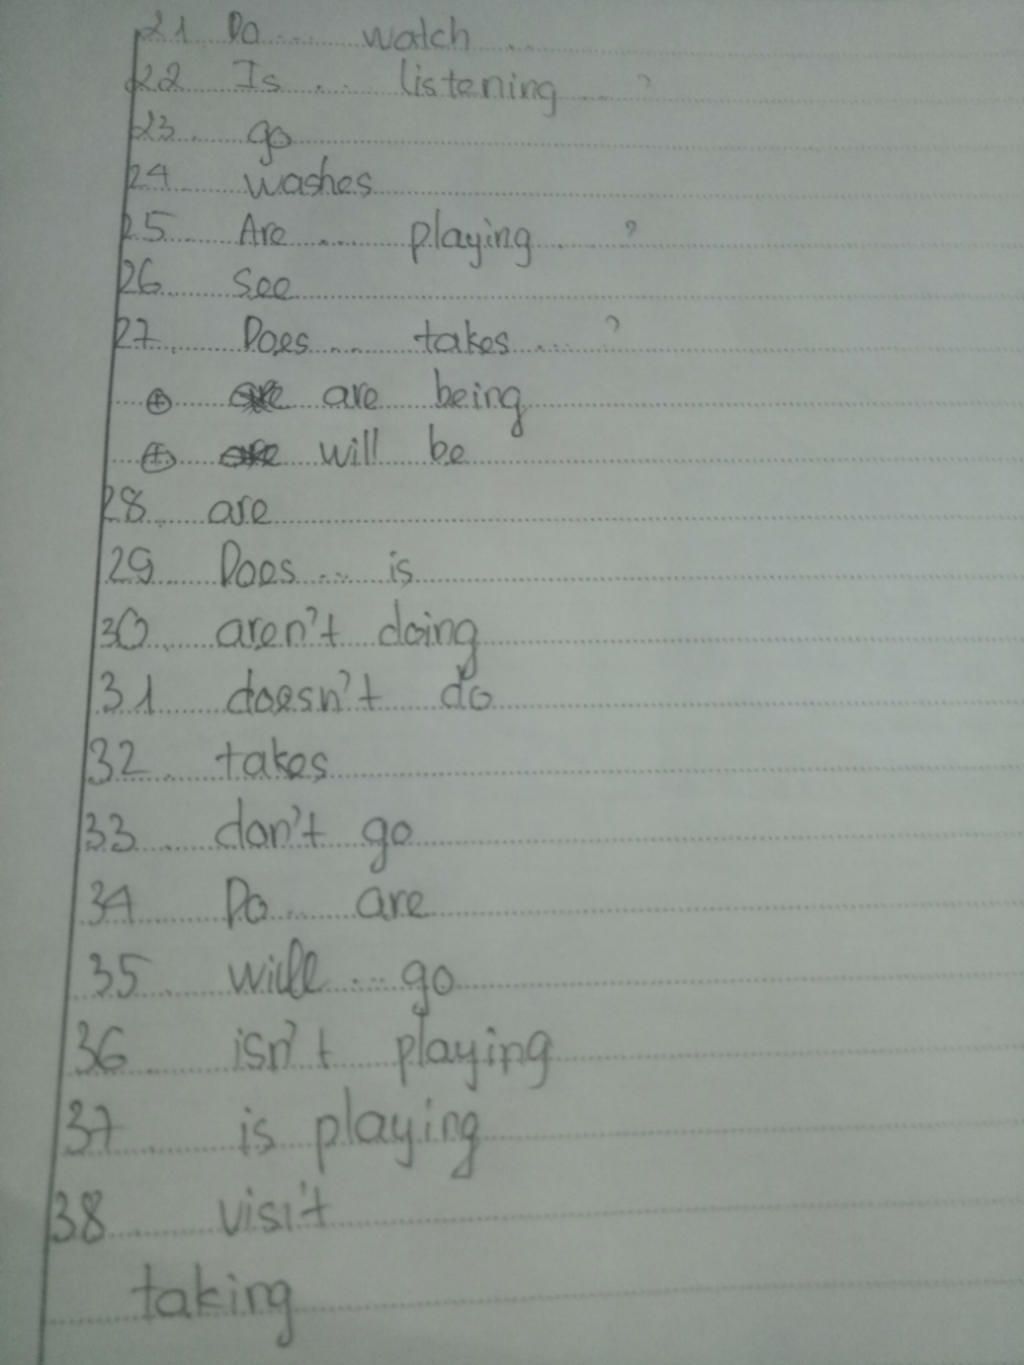 21 Do ... watch ...
22 Is ... listening ... ?
23 go
24 washes
25 Are ... playing ... ?
26 see
27 Does ... takes ... ?
⊕ are being
⊕ will be
28 are
29 Does ... is
30 aren't doing
31 doesn't do
32 takes
33 don't go
34 Do ... are
35 will ... go
36 isn't playing
37 is playing
38 visit
taking